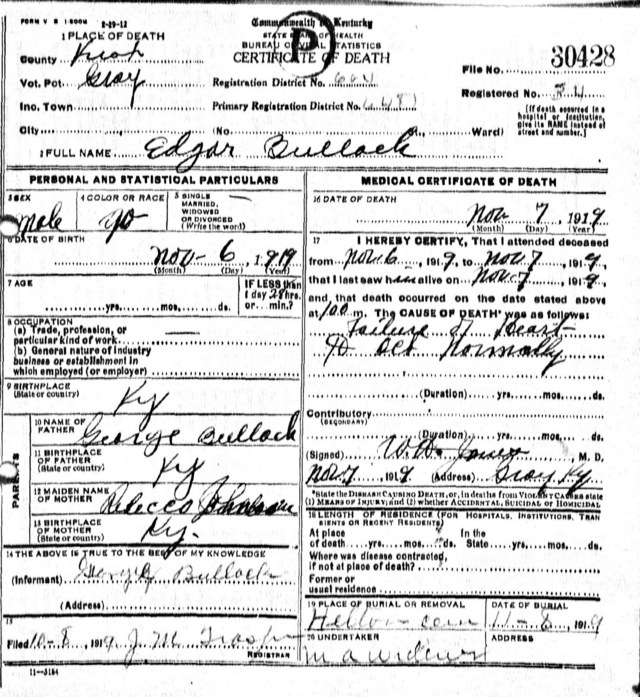 FORM V S 1-500M 2-19-12
Commonwealth of Kentucky
STATE BOARD OF HEALTH
BUREAU OF VITAL STATISTICS
CERTIFICATE OF DEATH
D
1 PLACE OF DEATH
County Knox
Vot. Pct. Gray
Inc. Town
City (No. St., Ward)
Registration District No.
Primary Registration District No.
File No. 30428
Registered No. 34
[If death occurred in a hospital or institution, give its NAME instead of street and number.]
2 FULL NAME Edgar Bullock
PERSONAL AND STATISTICAL PARTICULARS
3 SEX
male
4 COLOR OR RACE
5 SINGLE
MARRIED,
WIDOWED
OR DIVORCED
(Write the word)
6 DATE OF BIRTH
Nov- 6, 1919
(Month) (Day) (Year)
7 AGE
yrs. mos. ds.
IF LESS than
1 day hrs.
or min.?
8 OCCUPATION
(a) Trade, profession, or
particular kind of work
(b) General nature of industry
business or establishment in
which employed (or employer)
9 BIRTHPLACE
(State or country)
Ky
PARENTS
10 NAME OF
FATHER
George Bullock
11 BIRTHPLACE
OF FATHER
(State or country)
Ky
12 MAIDEN NAME
OF MOTHER
Rebecca Johnson
13 BIRTHPLACE
OF MOTHER
(State or country)
Ky.
14 THE ABOVE IS TRUE TO THE BEST OF MY KNOWLEDGE
(Informant) George Bullock
(Address)
15
Filed 10-8, 1919 J. M.
REGISTRAR
11-3184
MEDICAL CERTIFICATE OF DEATH
16 DATE OF DEATH
Nov 7 1919
(Month) (Day) (Year)
17 I HEREBY CERTIFY, That I attended deceased
from Nov 6 1919, to Nov 7 1919
that I last saw him alive on Nov 7 1919
and, that death occurred on the date stated above
at 1.00 m. The CAUSE OF DEATH* was as follows:
Failure of Heart
To Act Normally
(Duration) yrs. mos. ds.
Contributory
(SECONDARY)
(Duration) yrs. mos. ds.
(Signed) Jones, M. D.
Nov 7, 1919 (Address) Gray Ky
*State the DISEASE CAUSING DEATH, or, in deaths from VIOLENT CAUSES state
(1) MEANS OF INJURY; and (2) whether ACCIDENTAL, SUICIDAL or HOMICIDAL
18 LENGTH OF RESIDENCE (FOR HOSPITALS, INSTITUTIONS, TRAN
SIENTS OR RECENT RESIDENTS)
At place In the
of death yrs. mos. ds. State yrs. mos. ds.
Where was disease contracted,
if not at place of death?
Former or
usual residence
19 PLACE OF BURIAL OR REMOVAL
DATE OF BURIAL
11-8 1919
20 UNDERTAKER
ADDRESS